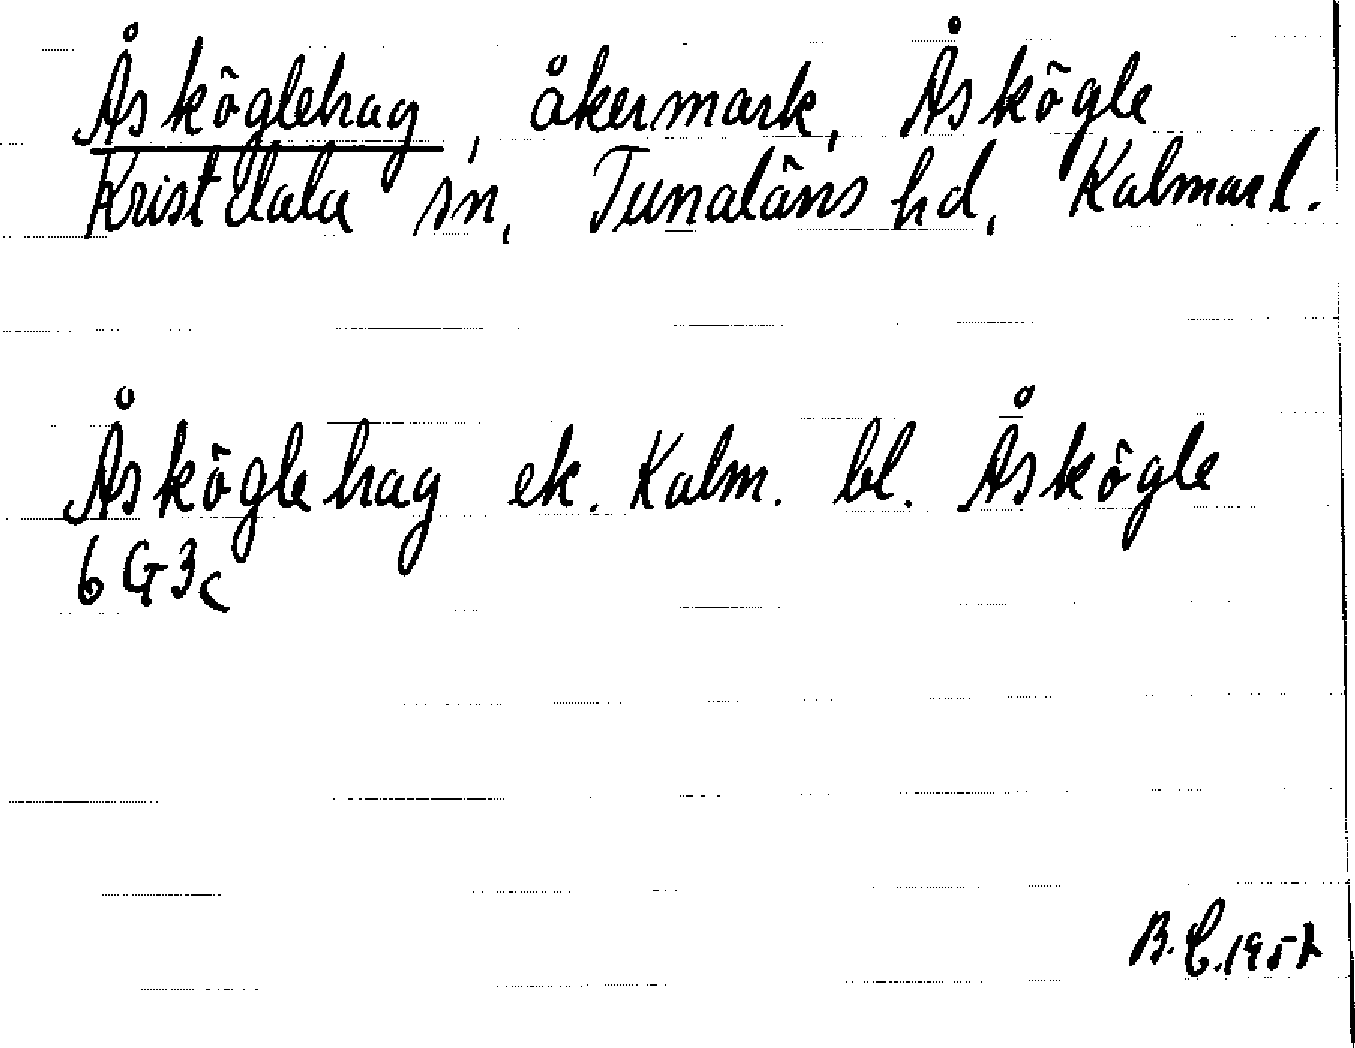 Åsköglehag, åkermark, Åskögle
Kristdala sn, Tunaläns hd, Kalmar l.
Åsköglehag ek. Kalm. bl. Åskögle
6 G 3c
B.C. 1957